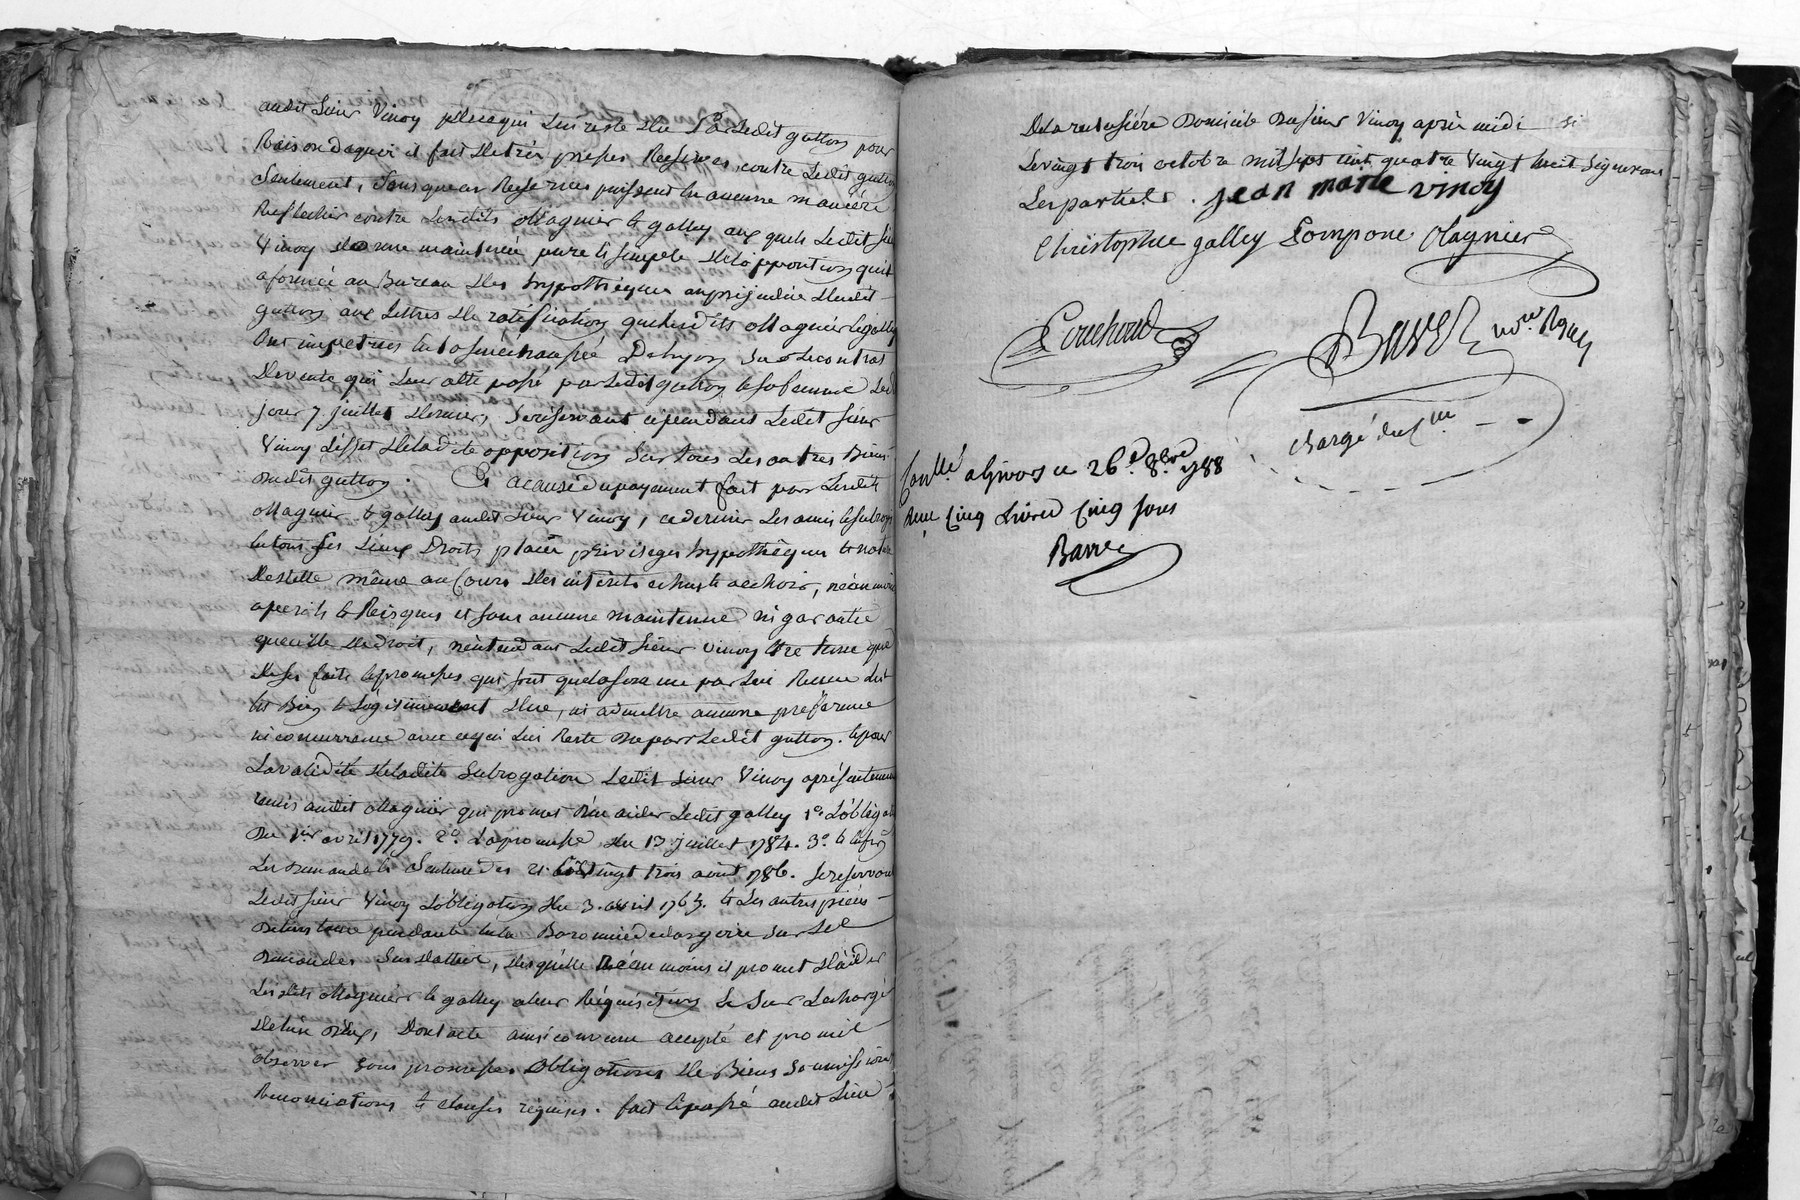 audit sieur Vinoy plus ce qui luy reste du par ledit gutton pour
Raison de quoi il fait de très expresses Reserves contre ledit gutton
seulement, sans que ces Reserves puissent en aucune manière
Reflechir contre lesdits Magnier & galley aux quels ledit sieur
Vinoy donne maintenue pure & simple de l'opposition qu'il
a formée au Bureau des hypothèques au prejudice dudit
gutton aux lettres de ratification que lesdits Magnier & galley
ont impetrées en la senechaussée De Lyon sur le contrat
De vente qui leur a été passé par ledit gutton & sa femme led.
jour 7. juillet dernier, se reservant cependant ledit sieur
Vinoy l'effet de ladite opposition sur tous les autres Biens
dudit gutton. Et a cause du payement fait par lesdits
Magnier & galley audit sieur Vinoy, ce dernier les a mis & subrogé
en tous ses lieux Droits place privileges hypothèques & nature
De dette même au Cours des interets echus & a echoir, néanmoins
a perils & Risques et sans aucune maintenue ni garantie
que celle de droit, n'entendant ledit sieur Vinoy etre tenu que
De ses faits & promesses qui sont que la somme par lui Recue lui
est Bien & légitimement due, ni admettre aucune préférence
ni concurrence avec ce qui lui Reste du par ledit gutton. & pour
La validité de ladite subrogation ledit sieur Vinoy a présentement
remis audit Magnier qui promet d'en aider ledit galley 1°. L'obligation
Du 1er avril 1779. 2°. La promesse du 13 juillet 1784. 3°. & enfin
Les demande & sentence des 21. & vingt trois aout 1786. se reservant
Ledit sieur Vinoy l'obligation du 3. avril 1765. & les autres pièces
De l'instance pendante en la Baronnie de sur les
demandes, desquelles néanmoins il promet d'aider
Lesdits Magnier & galley a leur Réquisition & sur La charge
De lui Dont acte ainsi convenu accepté et promis
observer sous promesses obligations de Biens soumissions
Renonciations & clauses requises. fait & passé audit lieu
De la rue domicile du sieur Vinoy après midi
Le vingt trois octobre mil sept cent quatre vingt huit signeront
Les parties. jean marie vinoy
Christophle galley Pompone Magnier
Couchoud
Barrel
chargé du
Conllé. a Givors ce 26.e 8bre 1788
Reçu Cinq Livres Cinq sous
Barrel